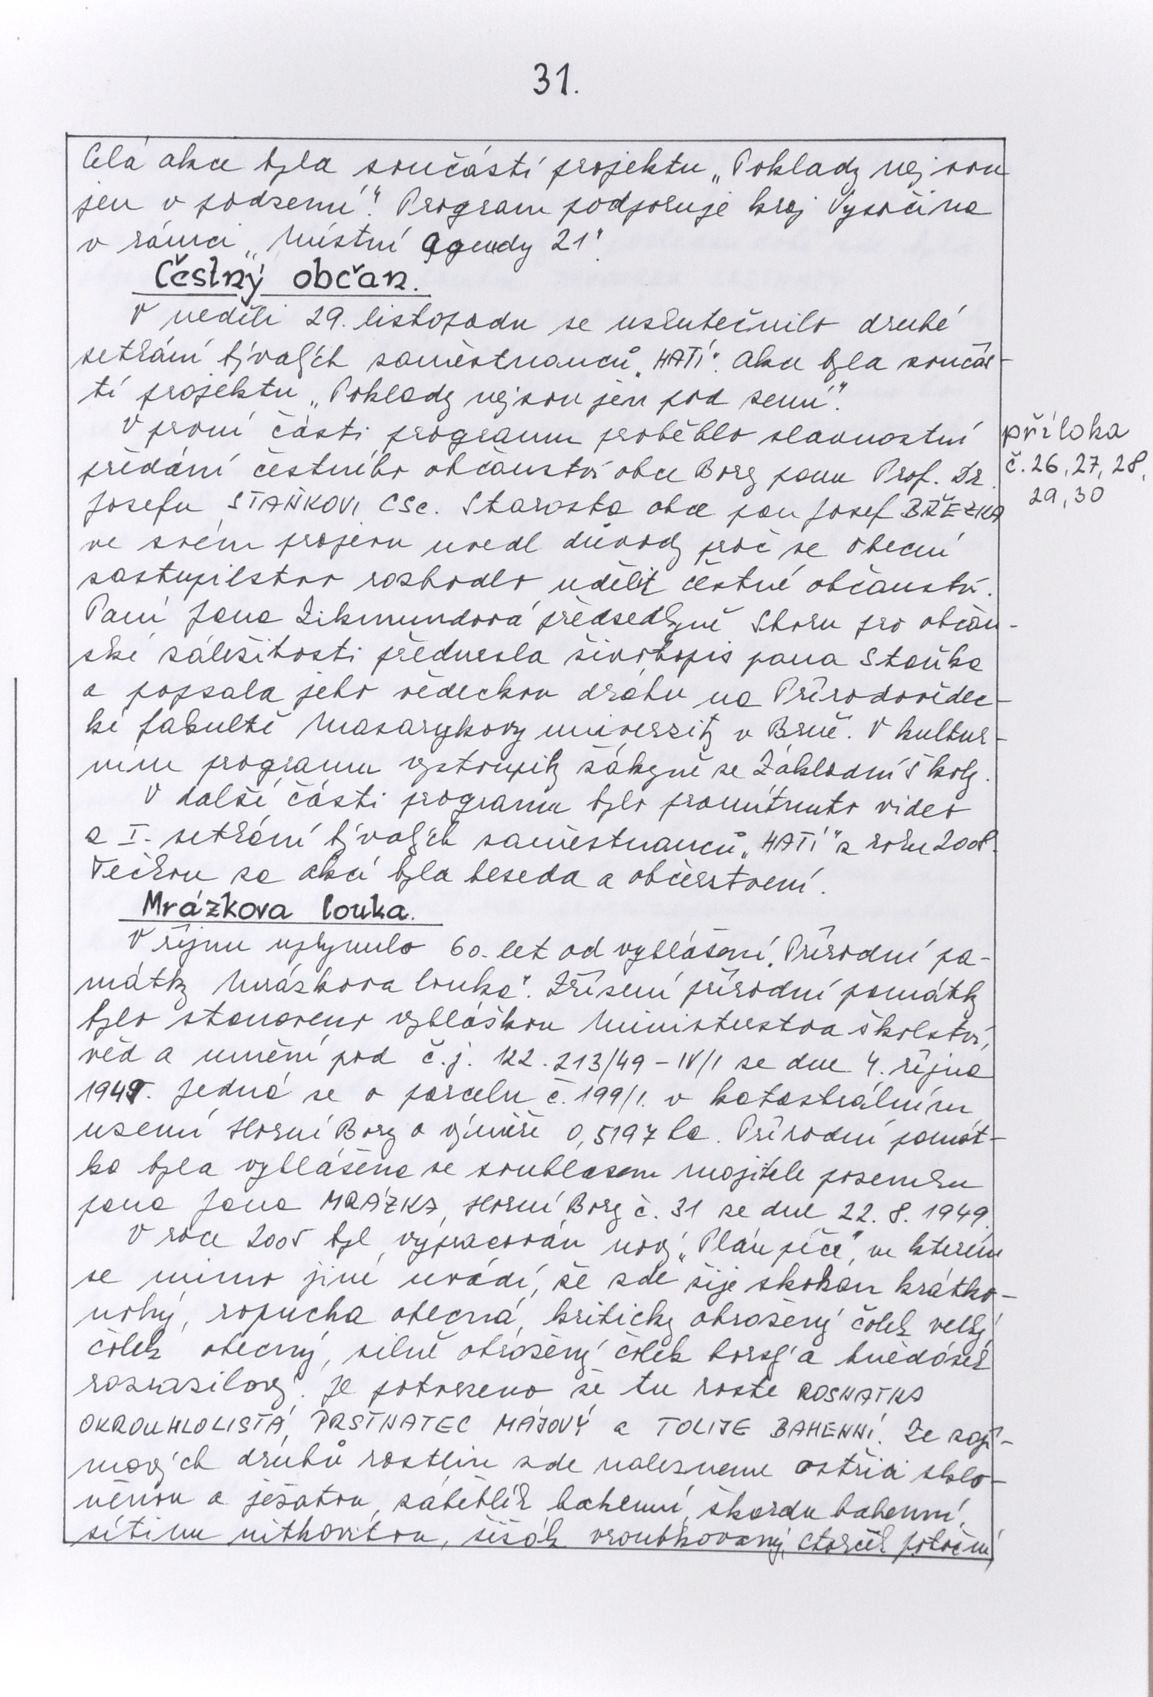 31.
Celá akce byla součástí projektu „Poklady nejsou
jen v podzemí". Program podporuje kraj Vysočina
v rámci „Místní agendy 21".
Čestný občan.
V neděli 29. listopadu se uskutečnilo druhé
setkání bývalých zaměstnanců „HATÍ". Akce byla součás-
tí projektu „Poklady nejsou jen pod zemí".
V první části programu proběhlo slavnostní
předání čestného občanství obce Bory panu Prof. Dr.
Josefu STAŇKOVI CSc. Starosta obce pan Josef BŘEZKA
ve svém projevu uvedl důvody proč se obecní
zastupilstvo rozhodlo udělit čestné občanství.
Paní Jana Zikmundová předsedkyně Sboru pro občan-
ské záležitosti přednesla životopis pana Staňka
a popsala jeho vědeckou dráhu na Přírodovědec-
ké fakultě Masarykovy university v Brně. V kultur-
ním programu vystoupily žákyně ze Základní školy.
V další části programu bylo promítnuto video
z I. setkání bývalých zaměstnanců „HATÍ" z roku 2008.
Tečkou za akcí byla beseda a občerstvení.
Mrázkova louka.
V říjnu uplynulo 60. let od vyhlášení „Přírodní pa-
mátky Mrázkova louka". Zřízení přírodní památky
bylo stanoveno vyhláškou Ministerstva školství,
věd a umění pod č.j. 122.213/49 - IV/1 ze dne 4. října
1949. Jedná se o parcelu č. 199/1. v katastrálním
území Horní Bory o výměře 0,5197 ha. Přírodní památ-
ka byla vyhlášena se souhlasem majitele pozemku
pana Jana MRÁZKA, Horní Bory č. 31 ze dne 22. 8. 1949.
V roce 2005 byl vypracován nový „Plán péče", ve kterém
se mimo jiné uvádí, že zde žije skokan krátko-
nohý, ropucha obecná, kriticky ohrožený čolek velký,
čolek obecný, silně ohrožený čolek horský a hnědásek
rozrazilový. Je potvrzeno že tu roste ROSNATKA
OKROUHLOLISTÁ, PRSTNATEC MÁJOVÝ a TOLIJE BAHENNÍ. Ze zají-
mavých druhů rostlin zde nalezneme ostřici sklo-
něnou a ježatou, zábělník bahenní, škardu bahenní,
sítinu nitkovitou, šišák vroubkovaný, starček potoční,
příloha
č. 26, 27, 28,
29, 30